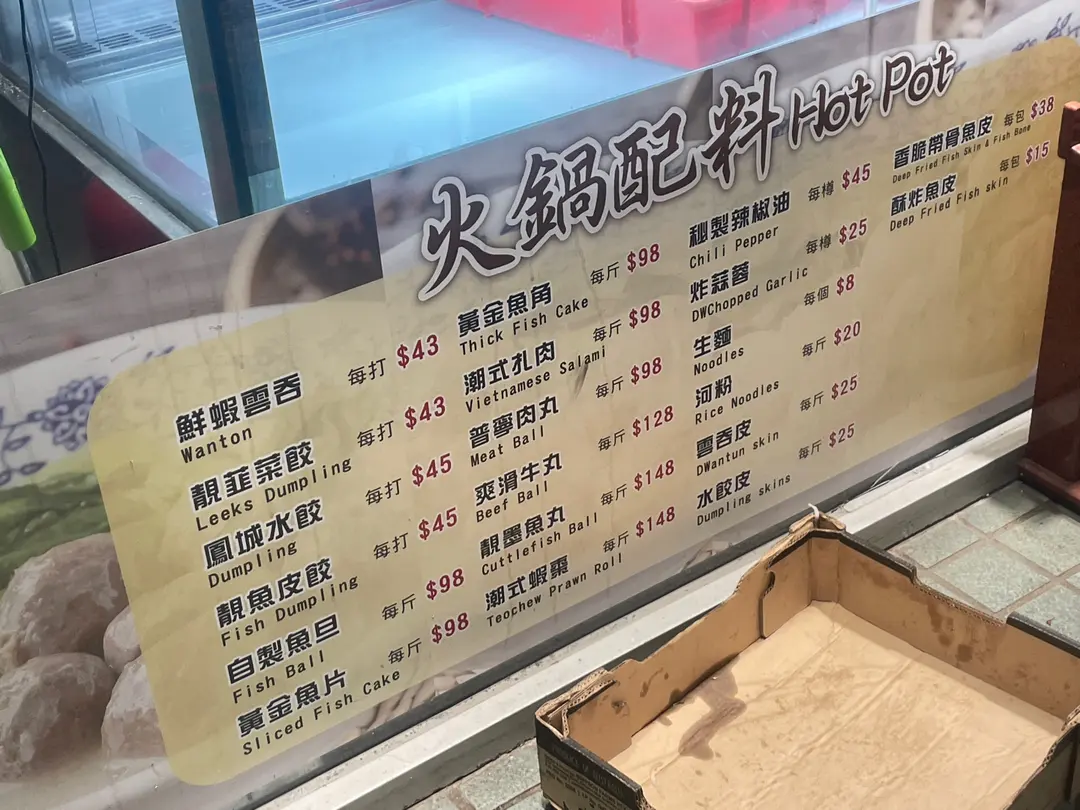 火鍋配料 Hot Pot
鮮蝦雲吞 每打 $43
Wanton
靚韮菜餃 每打 $43
Leeks Dumpling
鳳城水餃 每打 $45
Dumpling
靚魚皮餃 每打 $45
Fish Dumpling
自製魚旦 每斤 $98
Fish Ball
黃金魚片 每斤 $98
Sliced Fish Cake
黃金魚角 每斤 $98
Thick Fish Cake
潮式扎肉 每斤 $98
Vietnamese Salami
普寧肉丸 每斤 $98
Meat Ball
爽滑牛丸 每斤 $128
Beef Ball
靚墨魚丸 每斤 $148
Cuttlefish Ball
潮式蝦棗 每斤 $148
Teochew Prawn Roll
秘製辣椒油 每樽 $45
Chili Pepper
炸蒜蓉 每樽 $25
DWChopped Garlic
生麵 每個 $8
Noodles
河粉 每斤 $20
Rice Noodles
雲吞皮 每斤 $25
DWantun skin
水餃皮 每斤 $25
Dumpling skins
香脆帶骨魚皮 每包 $38
Deep Fried Fish Skin & Fish Bone
酥炸魚皮 每包 $15
Deep Fried Fish skin